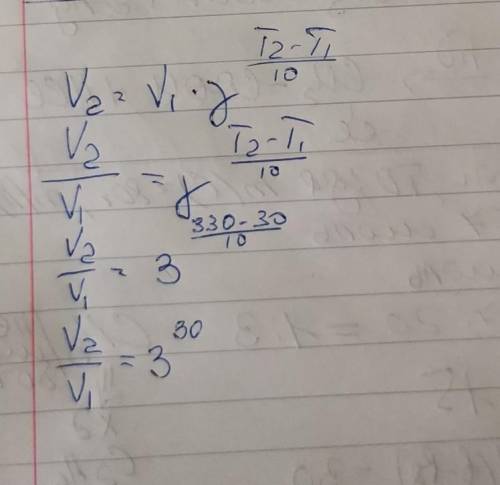 V₂ = V₁ · γ^((T₂-T₁)/10)
V₂/V₁ = γ^((T₂-T₁)/10)
V₂/V₁ = 3^((330-30)/10)
V₂/V₁ = 3^30